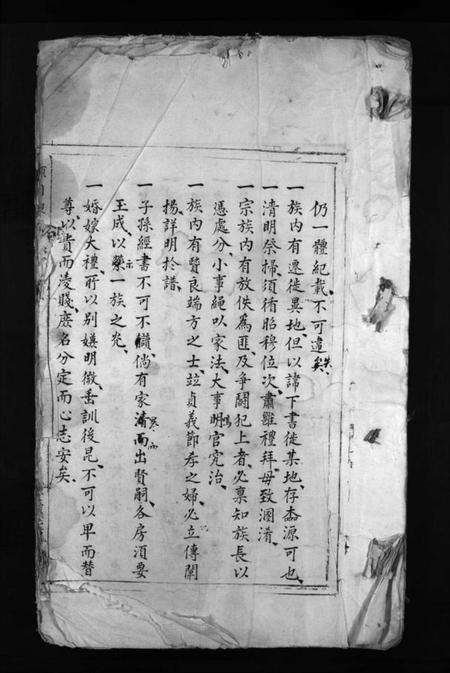 仍一體紀載、不可遺失矣
一族內有遷徙異地、但以諱下書徙某地、存森源可也、
一清明祭掃須循昭穆位次、肅雝禮拜、毋致溷淆、
一宗族內有放佚為匪、及爭鬪犯上者、必稟知族長以
憑處分、小事繩以家法、大事鳴官究治、
一族內有賢良端方之士、並貞義節孝之婦、必立傳闡
揚、詳明於譜、
一子孫經書不可不讀、倘有家清而出賢嗣、各房須要
玉成、以示榮一族之光、
一婚嫁大禮、所以别嫌明微、垂訓後昆、不可以卑而替
尊、以貴而淩賤、庶名分定而心志安矣、